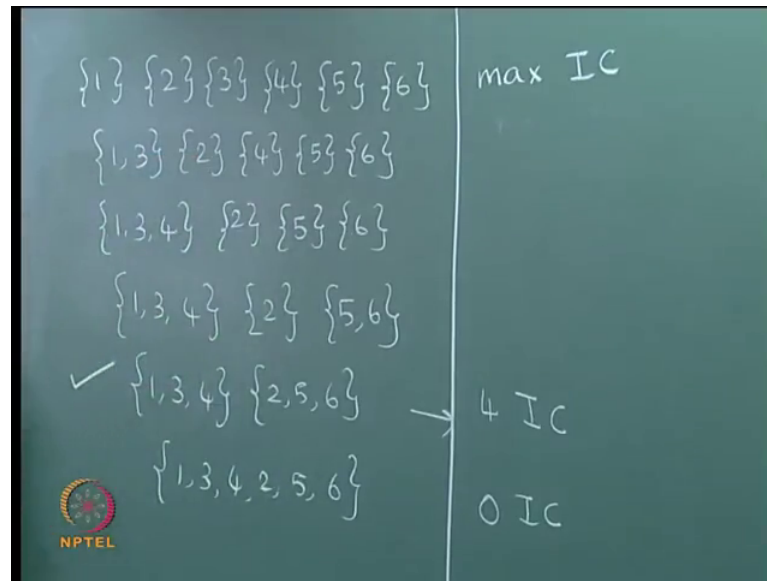 {1} {2} {3} {4} {5} {6} max IC
{1,3} {2} {4} {5} {6}
{1,3,4} {2} {5} {6}
{1,3,4} {2} {5,6}
✓ {1,3,4} {2,5,6} → 4 IC
{1,3,4,2,5,6} 0 IC
NPTEL